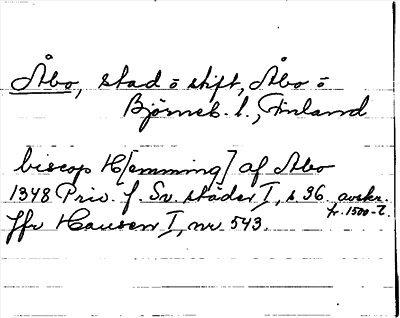 Åbo, stad o stift, Åbo o
Björneb. l., Finland
biscop H[emming] af Abo
1348 Priv. f. Sv. städer I, s. 36 avskr.
fr. 1500-t.
Jfr Hausen I, nr 543.